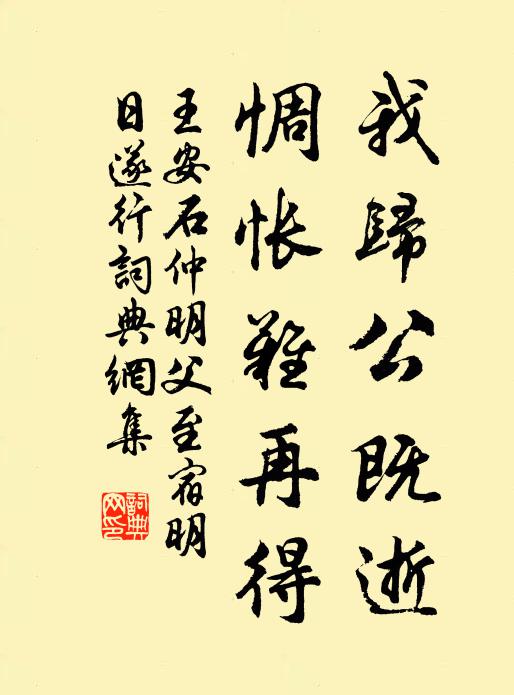 我歸公既逝
惆悵難再得
王安石仲明父至宿明
日遂行詞典網集
詞典
网印